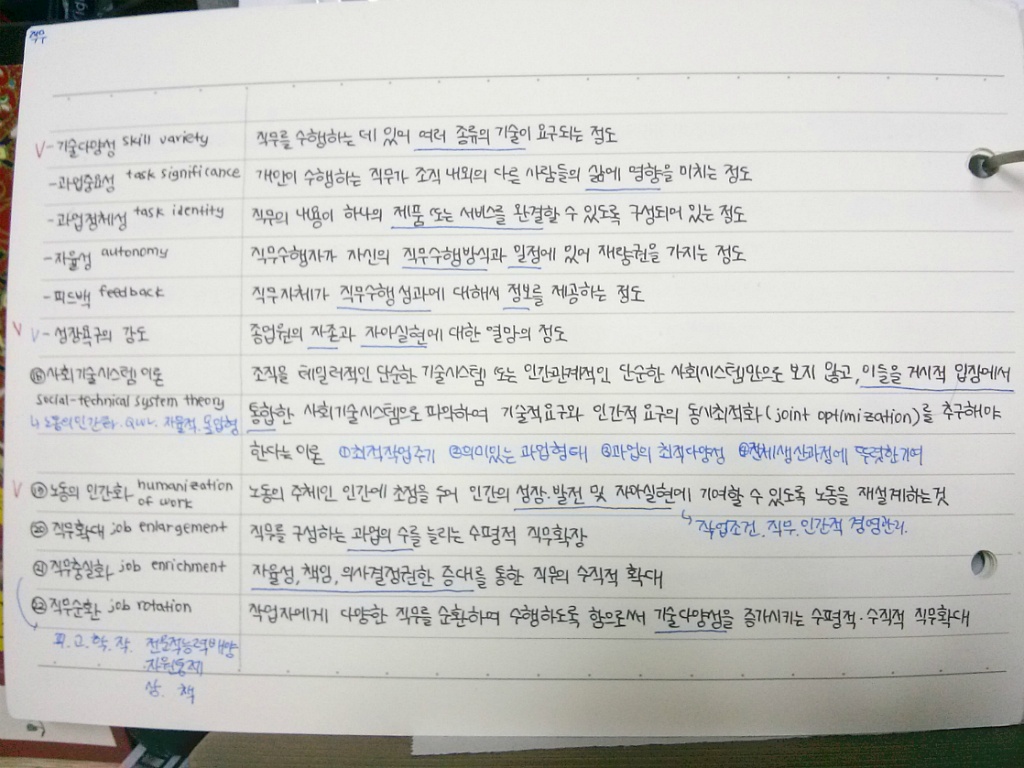 직무
V - 기술다양성 skill variety 직무를 수행하는 데 있어 여러 종류의 기술이 요구되는 정도
- 과업중요성 task significance 개인이 수행하는 직무가 조직 내외의 다른 사람들의 삶에 영향을 미치는 정도
- 과업정체성 task identity 직무의 내용이 하나의 제품 또는 서비스를 완결할 수 있도록 구성되어 있는 정도
- 자율성 autonomy 직무수행자가 자신의 직무수행방식과 일정에 있어 재량권을 가지는 정도
- 피드백 feedback 직무자체가 직무수행성과에 대해서 정보를 제공하는 정도
V V - 성장욕구의 강도 종업원의 자존과 자아실현에 대한 열망의 정도
⑱ 사회기술시스템 이론 조직을 테일러적인 단순한 기술시스템 또는 인간관계적인 단순한 사회시스템만으로 보지 않고, 이들을 거시적 입장에서
social-technical system theory 통합한 사회기술시스템으로 파악하여 기술적요구와 인간적 요구의 동시최적화(joint optimization)를 추구해야
↳ 노동의인간화. QWL. 자율적
한다는 이론 ①최적작업주기 ②의미있는 과업형태 ③과업의 최적다양성 ④전체생산과정에 뚜렷한기여
V ⑲ 노동의 인간화 humanization of work 노동의 주체인 인간에 초점을 두어 인간의 성장·발전 및 자아실현에 기여할 수 있도록 노동을 재설계하는것
↳ 작업조건. 직무. 인간적 경영관리.
⑳ 직무확대 job enlargement 직무를 구성하는 과업의 수를 늘리는 수평적 직무확장
㉑ 직무충실화 job enrichment 자율성, 책임, 의사결정권한 증대를 통한 직무의 수직적 확대
㉒ 직무순환 job rotation 작업자에게 다양한 직무를 순환하며 수행하도록 함으로써 기술다양성을 증가시키는 수평적·수직적 직무확대
피. 고. 학. 작. 전문적능력배양
자원통제
상. 책